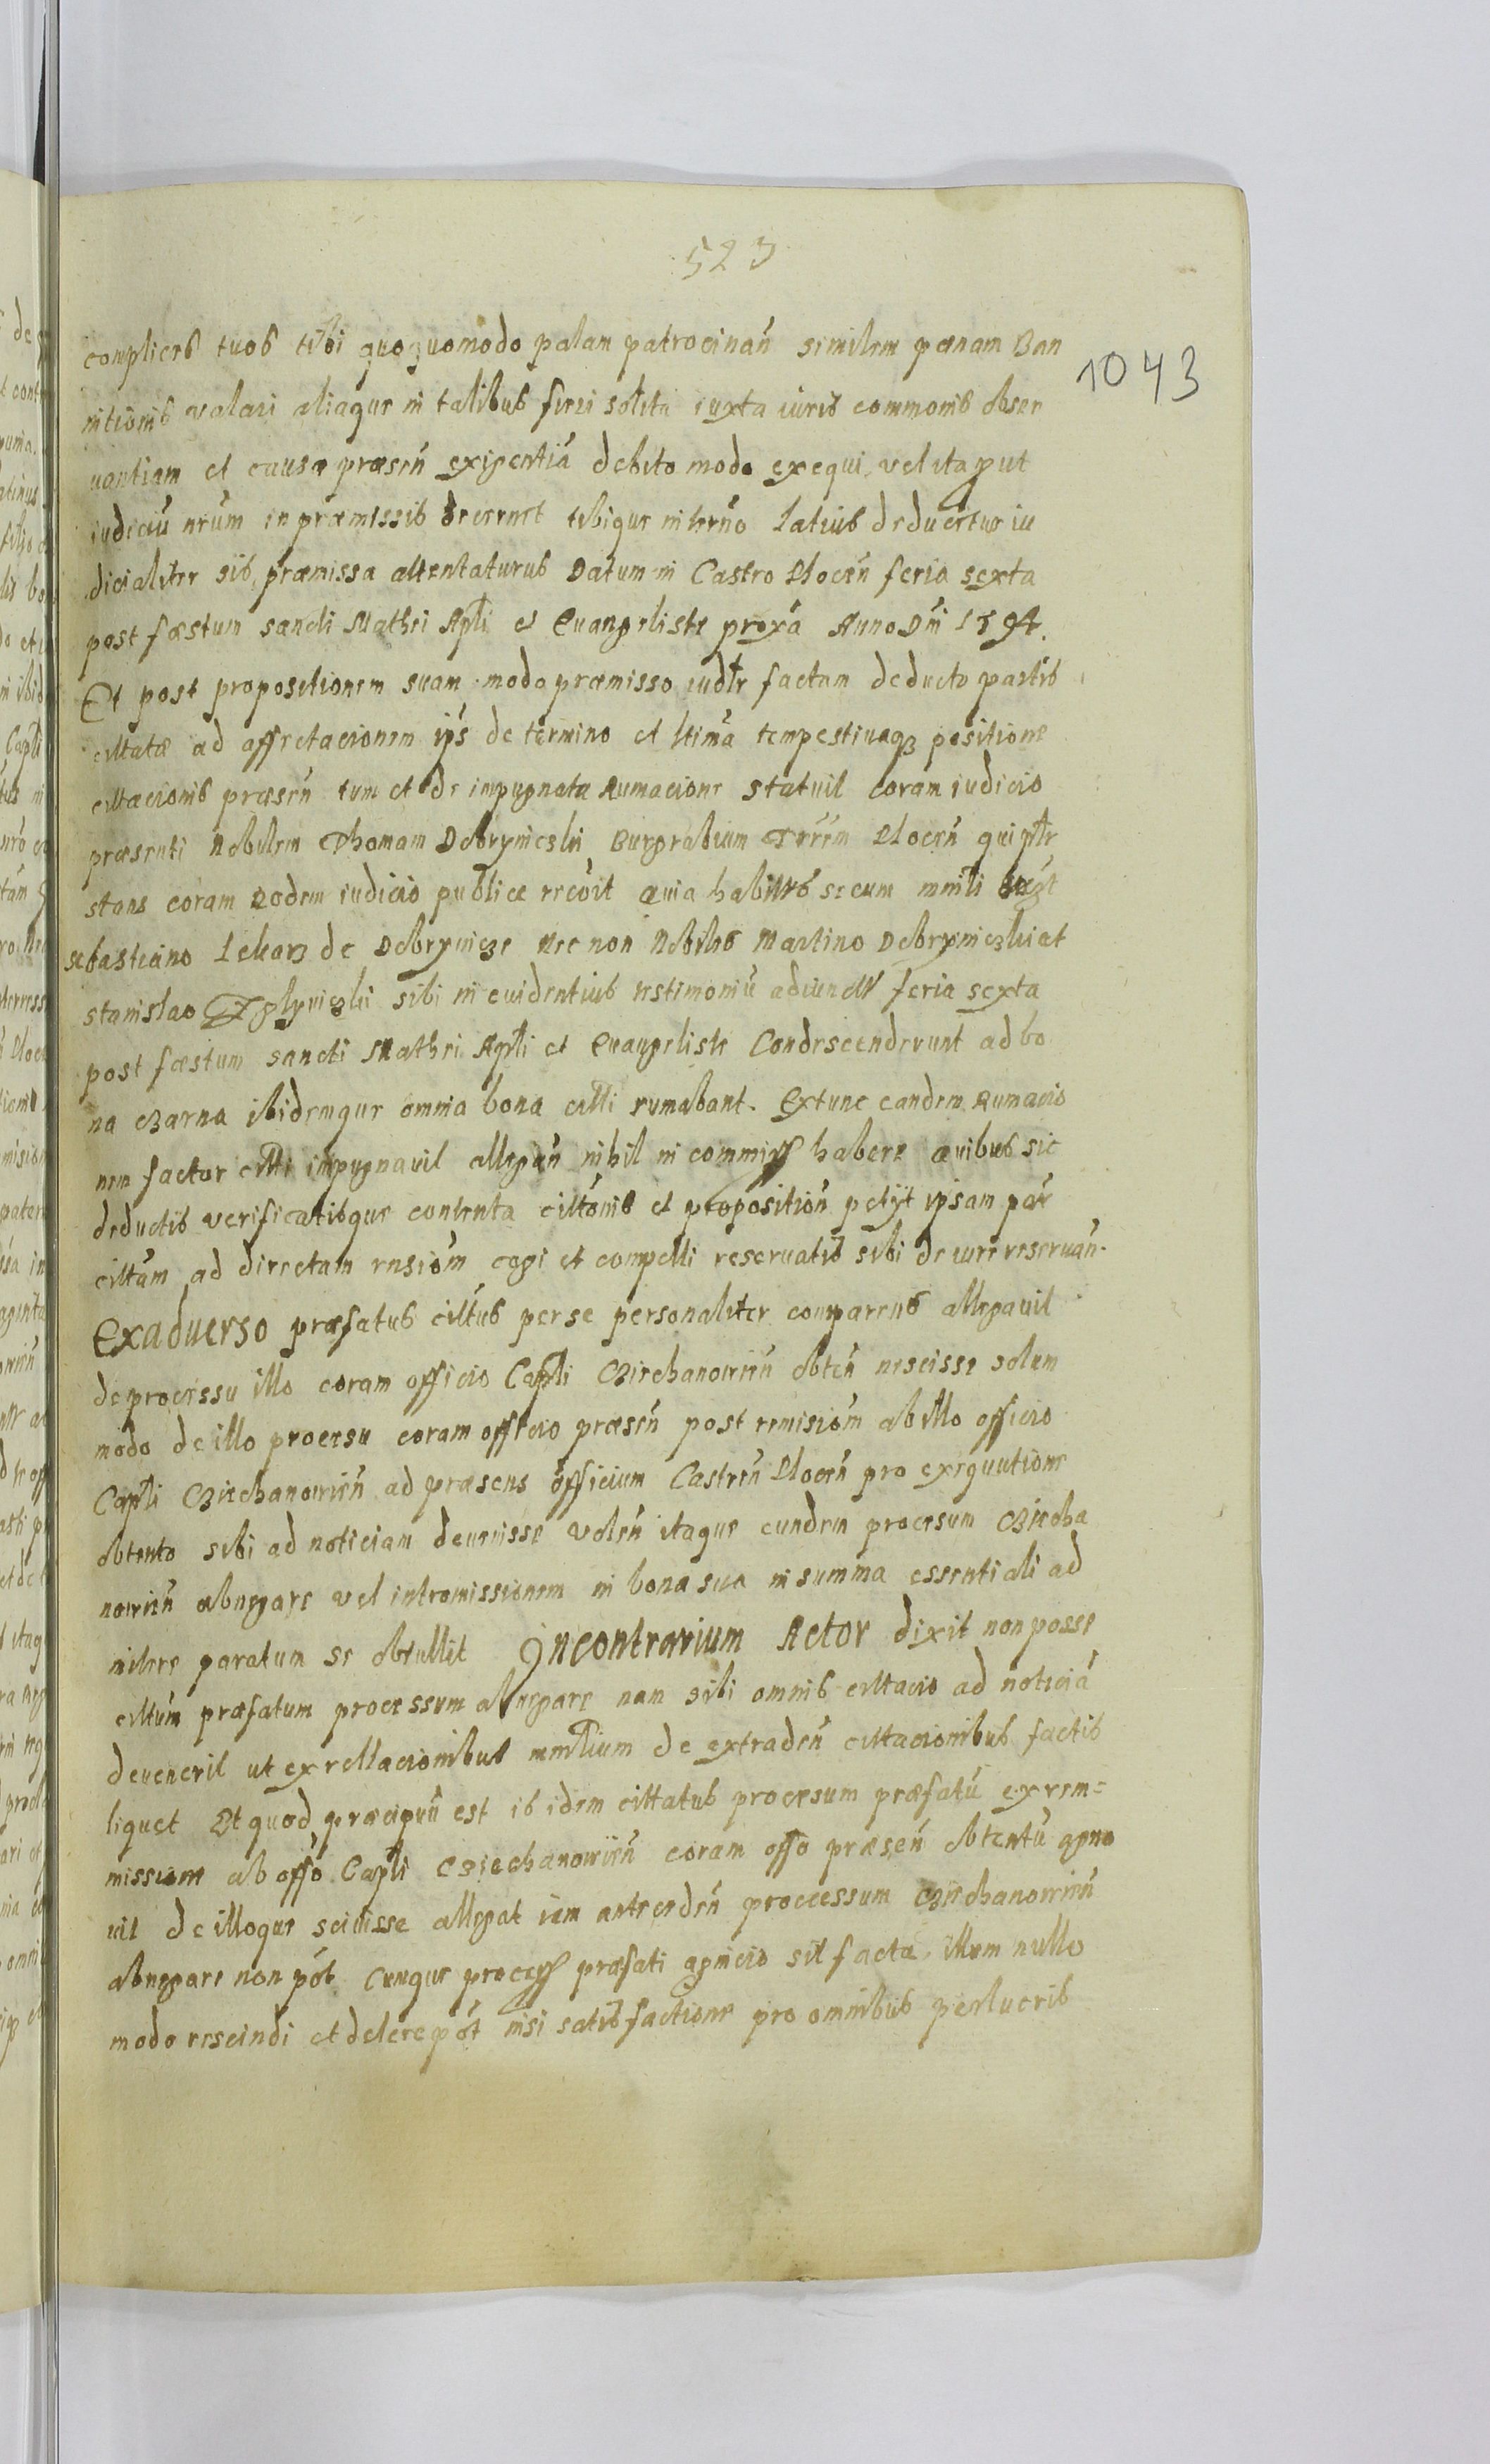 523
1043
complices tuos tibi quoquomodo palam patrocinañ similem pœnam Ban
nitionis valari aliaque in talibus fieri solita iuxta iuris communis obser
uantiam et causæ præseñ exigentiã debito modo exequi, vel ita put
iudiciũ nrũm in præmissis decernet tibique in terno latius deducetur iu
dicialiter sis, præmissa attentaturus Datum in Castro Plocen feria sexta
post fæstum sancti Mathei Apli et Euangeliste proxã Anno Dni 1594.
Et post propositionem suam modo præmisso iudtr factam deducto partis
cittatæ ad affectacionem ips de termino et ltima tempestiuaq positione
cittacionis præseñ tum et de impugnata Rumacione statuit coram iudicio
præsenti Nobilem Thomam Dobrynieski Burgrabium Plocen qui pltr
stans coram Eodem iudicio publice recõit Quia habitis secum mnli
sebastiano Lekarz de Dobrynicze nec non Nobiles Martino Dobryniczki at
stanislao sibi in euidentius testimoniũ adiunctis feria sexta
post fæstum sancti Mathei Apli et Euangeliste Condescenderunt ad bo
na czarna ibidemque omnia bona citti rumabant. Extunc eandem Rumacio
nem factor citti impugnauit allegañ nihil in commiss habere Quibus sic
deductis verificatisque contenta cittonis et propositioñ petÿt ipsam par
cittam ad directam rnsiom cogi et compelli reseruatis sibi de iure reseruañ.
Exaduerso præfatus cittus per se personaliter comparens allegauit
de processu illo coram officio Capli Cziechanowień obteñ nescisse solum
modo de illo procesu coram officio præseñ post remisiom ab illo officio
Capli Cziechanowień ad præsens officium Castreñ Plocen pro exequutione
obtento sibi ad noticiam deuenisse voleñ itaque eundem procesum Cziecha
nowień abnegare vel intromissionem in bona sua in summa essentiali ad
mitere paratum se obtullit Incontrarium Actor dixit non posse
cittum præfatum processum abnegare nam sibi omnis cittacio ad noticiã
deuenerit ut ex rellacionibus mnlium de extradeñ cittacionibus factis
liquet Et quod præcipuũ est is idem cittatus procesum præfatũ ex rem=
missione ab offo Capli Cziechanowień coram offo præseñ obtentũ agno
uit de illoque sciuisse allegat iam antecedeñ proccessum Cziechanowień
abnegare non pot Cumque process præfati agnicio sit facta illum nullo
modo rescindi et delere pot nisi satisfactione pro omnibus perlucris